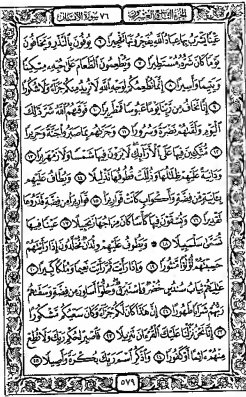 الجزء التاسع والعشرون ٧٦ سورة الإنسان
عَيْنًا يَشْرَبُ بِهَا عِبَادُ ٱللَّهِ يُفَجِّرُونَهَا تَفْجِيرًا ٦ يُوفُونَ بِٱلنَّذْرِ وَيَخَافُونَ
يَوْمًا كَانَ شَرُّهُۥ مُسْتَطِيرًا ٧ وَيُطْعِمُونَ ٱلطَّعَامَ عَلَىٰ حُبِّهِۦ مِسْكِينًا
وَيَتِيمًا وَأَسِيرًا ٨ إِنَّمَا نُطْعِمُكُمْ لِوَجْهِ ٱللَّهِ لَا نُرِيدُ مِنكُمْ جَزَآءً وَلَا شُكُورًا
٩ إِنَّا نَخَافُ مِن رَّبِّنَا يَوْمًا عَبُوسًا قَمْطَرِيرًا ١٠ فَوَقَىٰهُمُ ٱللَّهُ شَرَّ ذَٰلِكَ
ٱلْيَوْمِ وَلَقَّىٰهُمْ نَضْرَةً وَسُرُورًا ١١ وَجَزَىٰهُم بِمَا صَبَرُوا۟ جَنَّةً وَحَرِيرًا
١٢ مُّتَّكِـِٔينَ فِيهَا عَلَى ٱلْأَرَآئِكِ لَا يَرَوْنَ فِيهَا شَمْسًا وَلَا زَمْهَرِيرًا ١٣
وَدَانِيَةً عَلَيْهِمْ ظِلَٰلُهَا وَذُلِّلَتْ قُطُوفُهَا تَذْلِيلًا ١٤ وَيُطَافُ عَلَيْهِم
بِـَٔانِيَةٍ مِّن فِضَّةٍ وَأَكْوَابٍ كَانَتْ قَوَارِيرَا۠ ١٥ قَوَارِيرَا۟ مِن فِضَّةٍ قَدَّرُوهَا
تَقْدِيرًا ١٦ وَيُسْقَوْنَ فِيهَا كَأْسًا كَانَ مِزَاجُهَا زَنجَبِيلًا ١٧ عَيْنًا فِيهَا
تُسَمَّىٰ سَلْسَبِيلًا ١٨ وَيَطُوفُ عَلَيْهِمْ وِلْدَٰنٌ مُّخَلَّدُونَ إِذَا رَأَيْتَهُمْ
حَسِبْتَهُمْ لُؤْلُؤًا مَّنثُورًا ١٩ وَإِذَا رَأَيْتَ ثَمَّ رَأَيْتَ نَعِيمًا وَمُلْكًا كَبِيرًا ٢٠
عَٰلِيَهُمْ ثِيَابُ سُندُسٍ خُضْرٌ وَإِسْتَبْرَقٌ وَحُلُّوٓا۟ أَسَاوِرَ مِن فِضَّةٍ وَسَقَىٰهُمْ
رَبُّهُمْ شَرَابًا طَهُورًا ٢١ إِنَّ هَٰذَا كَانَ لَكُمْ جَزَآءً وَكَانَ سَعْيُكُم مَّشْكُورًا
٢٢ إِنَّا نَحْنُ نَزَّلْنَا عَلَيْكَ ٱلْقُرْءَانَ تَنزِيلًا ٢٣ فَٱصْبِرْ لِحُكْمِ رَبِّكَ وَلَا تُطِعْ
مِنْهُمْ ءَاثِمًا أَوْ كَفُورًا ٢٤ وَٱذْكُرِ ٱسْمَ رَبِّكَ بُكْرَةً وَأَصِيلًا ٢٥
٥٧٩